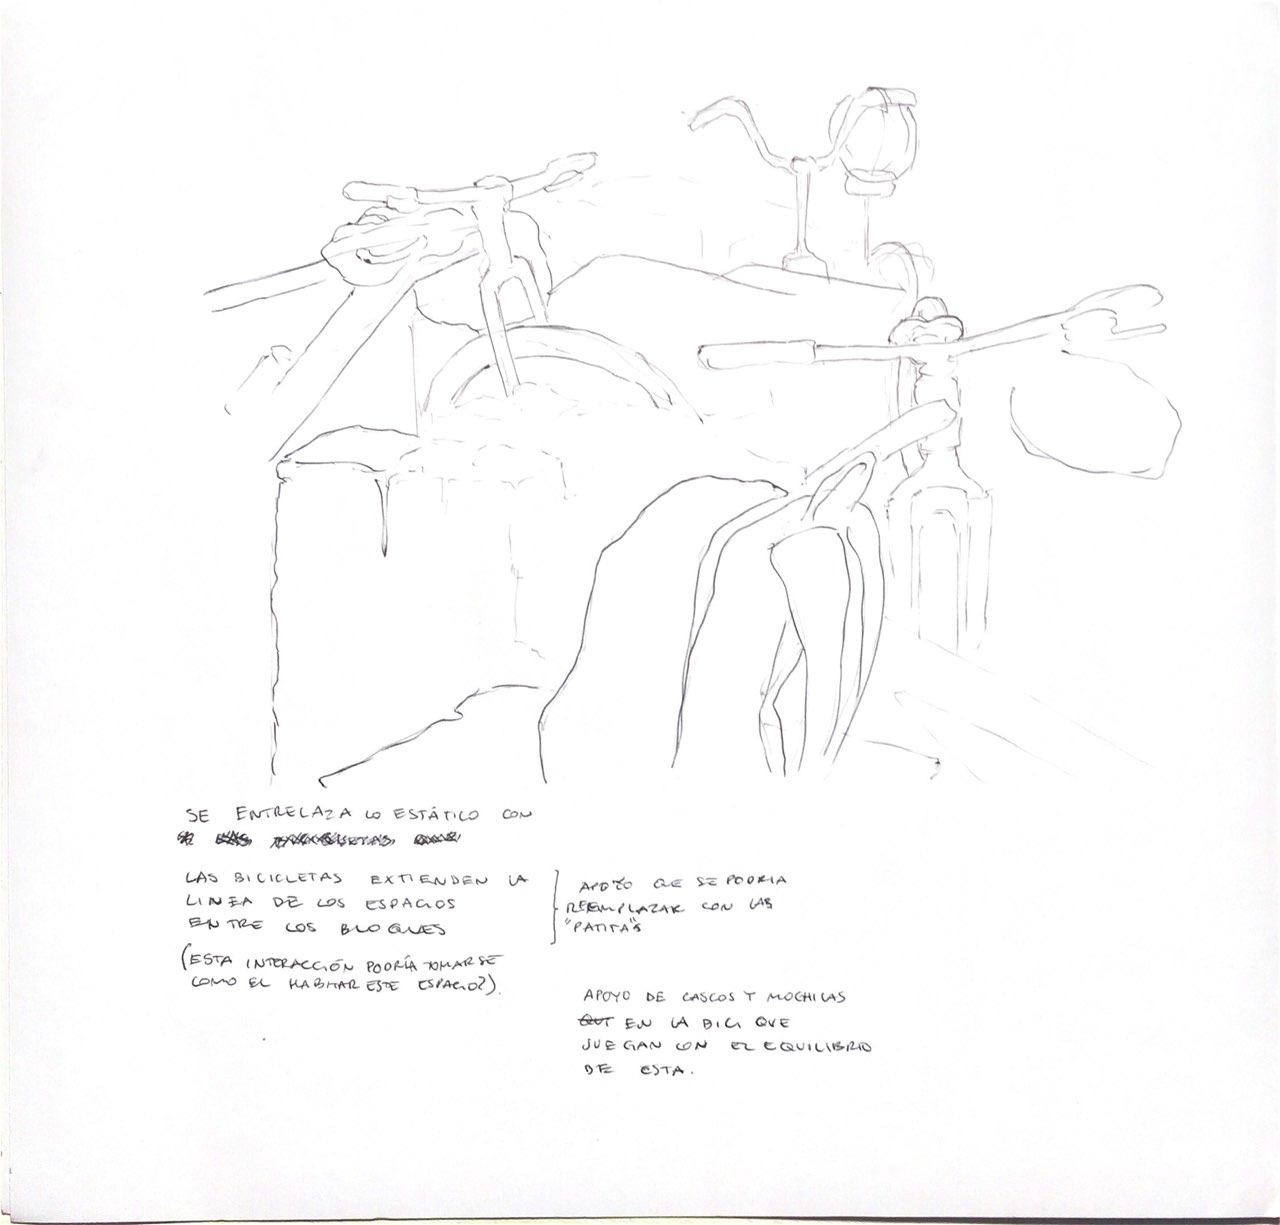 SE ENTRELAZA LO ESTÁTICO CON
LAS BICICLETAS EXTIENDEN LA
LINEA DE LOS ESPACIOS
ENTRE LOS BLOQUES
(ESTA INTERACCIÓN PODRÍA TOMARSE
COMO EL HABITAR ESTE ESPACIO?).
APOYO QUE SE PODRIA
REEMPLAZAR CON LAS
"PATITAS"
APOYO DE CASCOS Y MOCHILAS
EN LA BICI QUE
JUEGAN CON EL EQUILIBRIO
DE ESTA.